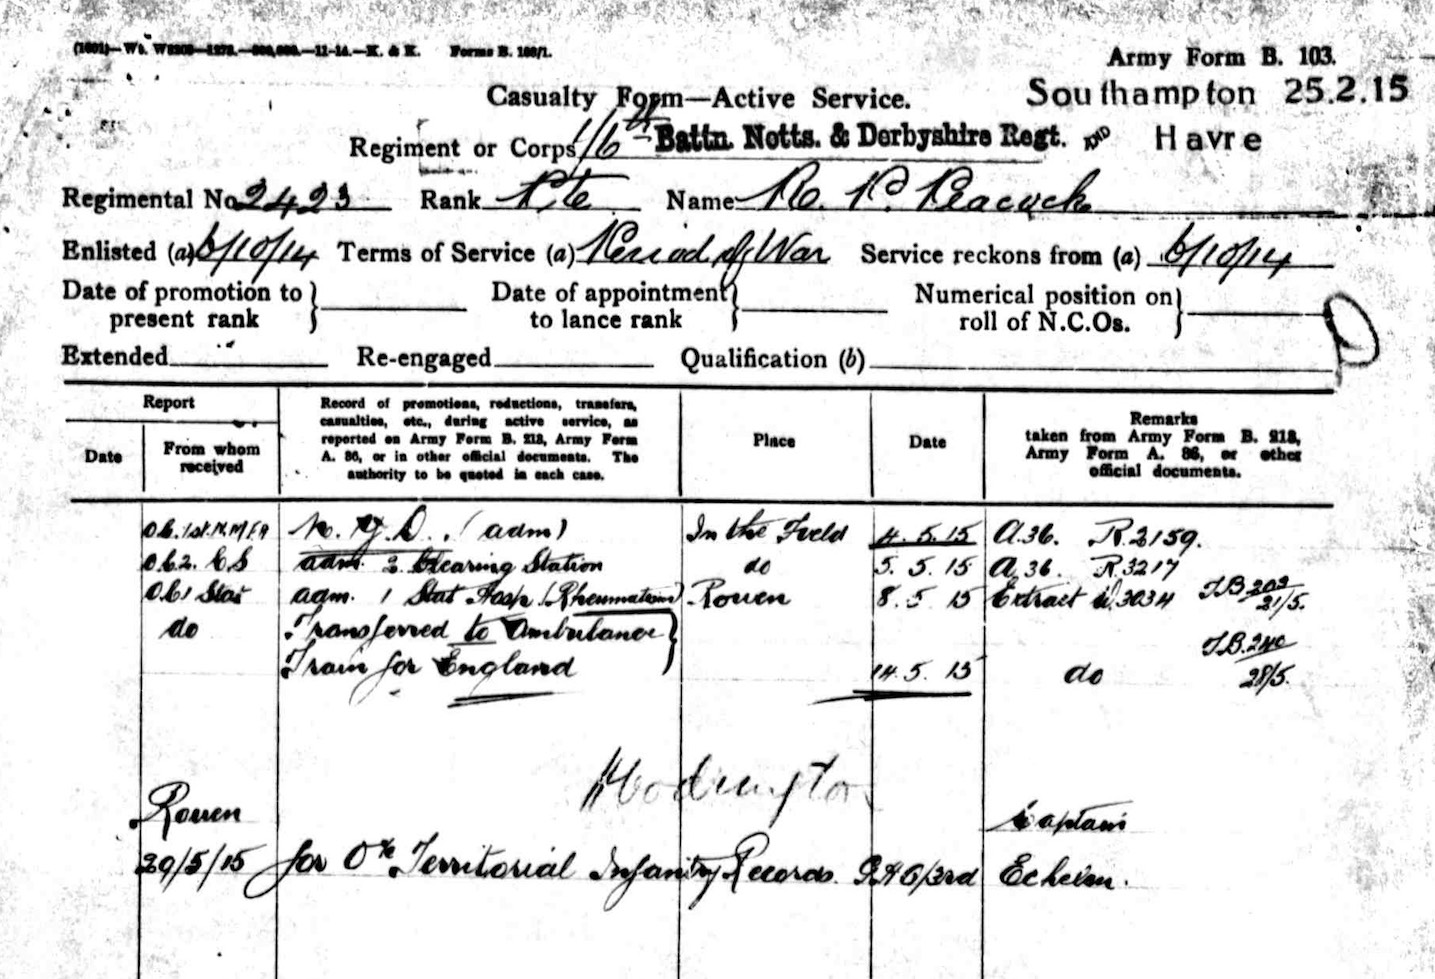 Forms B. 103/1.
Army Form B. 103.
Casualty Form—Active Service.
Southampton 25.2.15
Regiment or Corps 1/6th Battn. Notts. & Derbyshire Regt. AND Havre
Regimental No. 2423 Rank Pte Name R. P. Peacock
Enlisted (a) 6/10/14 Terms of Service (a) Period of War Service reckons from (a) 6/10/14
Date of promotion to present rank } Date of appointment to lance rank } Numerical position on roll of N.C.Os. }
Extended Re-engaged Qualification (b)
Report
Date
From whom received
Record of promotions, reductions, transfers, casualties, etc., during active service, as reported on Army Form B. 213, Army Form A. 36, or in other official documents. The authority to be quoted in each case.
Place
Date
Remarks
taken from Army Form B. 213, Army Form A. 36, or other official documents.
N.Y.D. (adm) In the Field 4.5.15 A.36. R.2159.
O.C. 2. C S adm. 2 Clearing Station do 5.5.15 A.36. R.3217
O.C. 1 Stat adm. 1 Stat Hosp (Rheumatism) Rouen 8.5.15 Extract 3034 21/5.
do Transferred to Ambulance }
Train for England 14.5.15 do 28/5.
Rouen Captain
29/5/15 for Territorial Infantry Records 3rd Echelon.